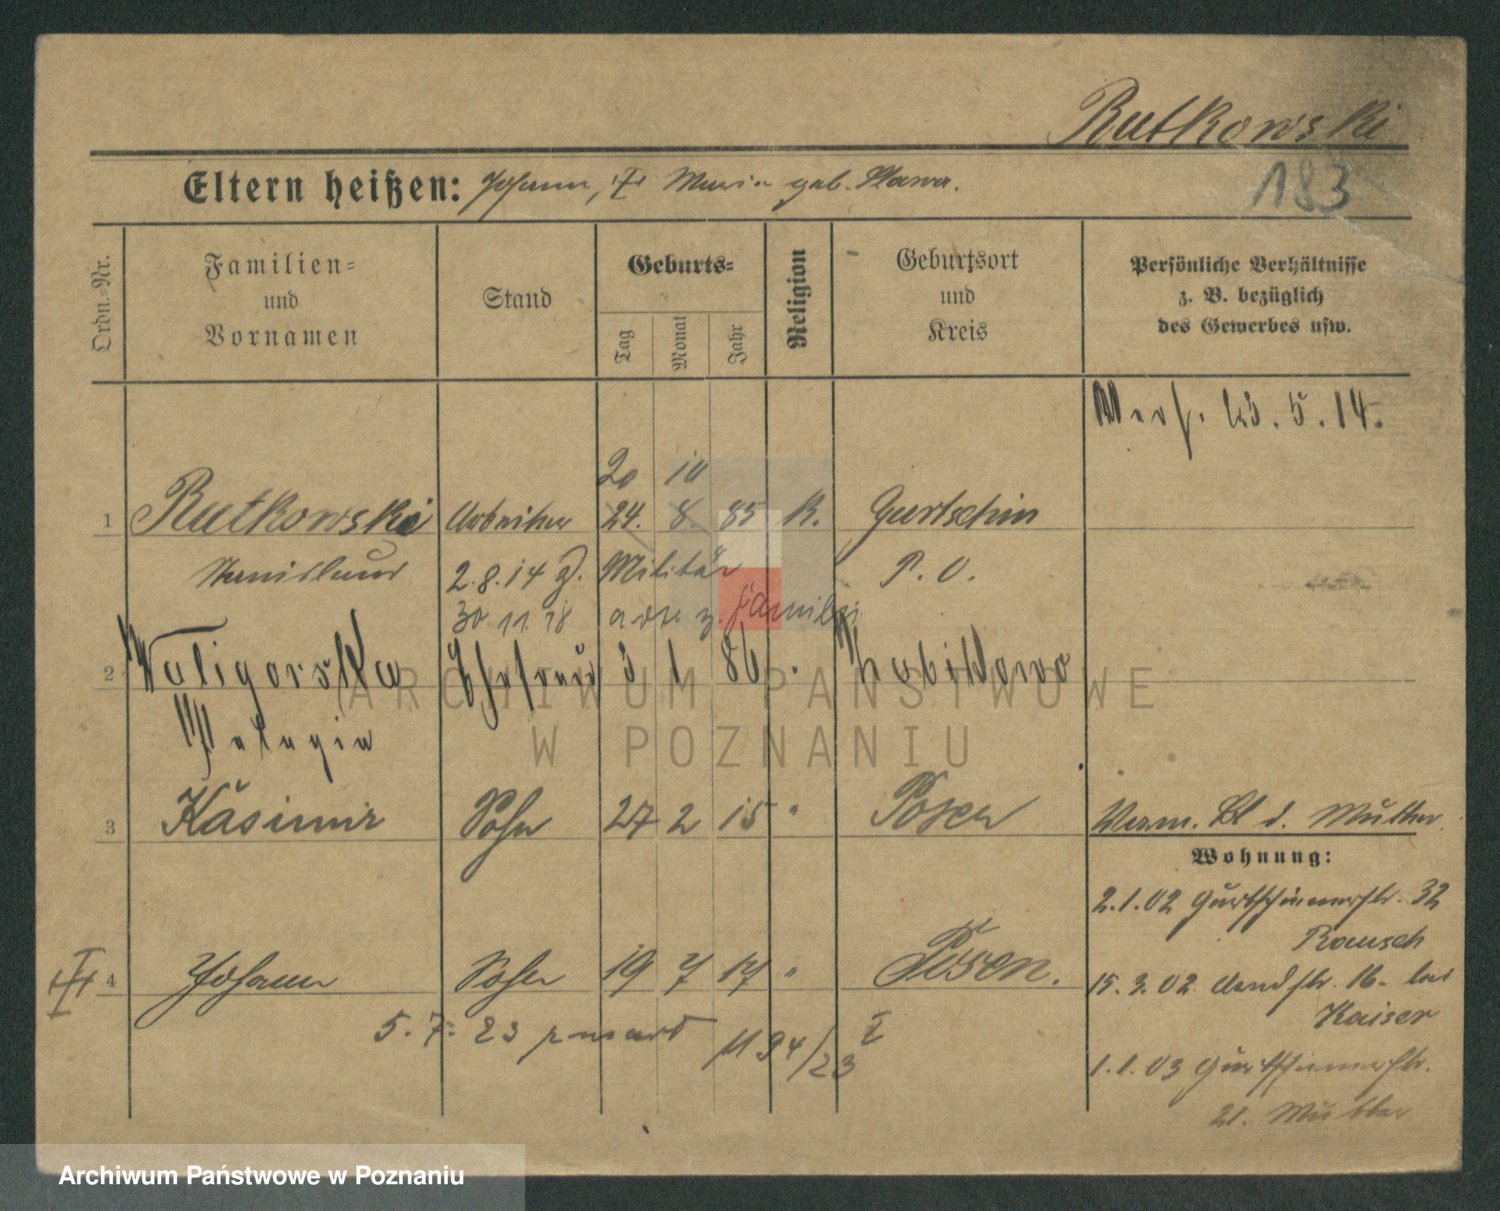 Rutkowski
183
Eltern heißen: Johann, Maria geb. Slawa.
Ordn.-Nr.
Familien-
und
Vornamen
Stand
Geburts-
Tag
Monat
Jahr
Religion
Geburtsort
und
Kreis
Persönliche Verhältnisse
z. B. bezüglich
des Gewerbes usw.
23. 5. 14.
20 10
1 Rutkowski Arbeiter 24. 8. 85 K. Gurtschin
Stanislaus 2.8.14 Militär P. O.
30 11 18 z. Familie
2 Waligorska Ehefrau 3 1 86 Zabikowo
Pelagia
3 Kasimir Sohn 27 2 15 " Posen d. Mutter
Wohnung:
2.1.02 Gurtschinerstr. 32
Rausch
4 Johann Sohn 19 7 17 " Posen. 15. 3. 02 16. bei
Kaiser
5. 7. 23
1.1.03 Gurtschinerstr.
21. Mutter
ARCHIWUM PAŃSTWOWE
W POZNANIU
Archiwum Państwowe w Poznaniu